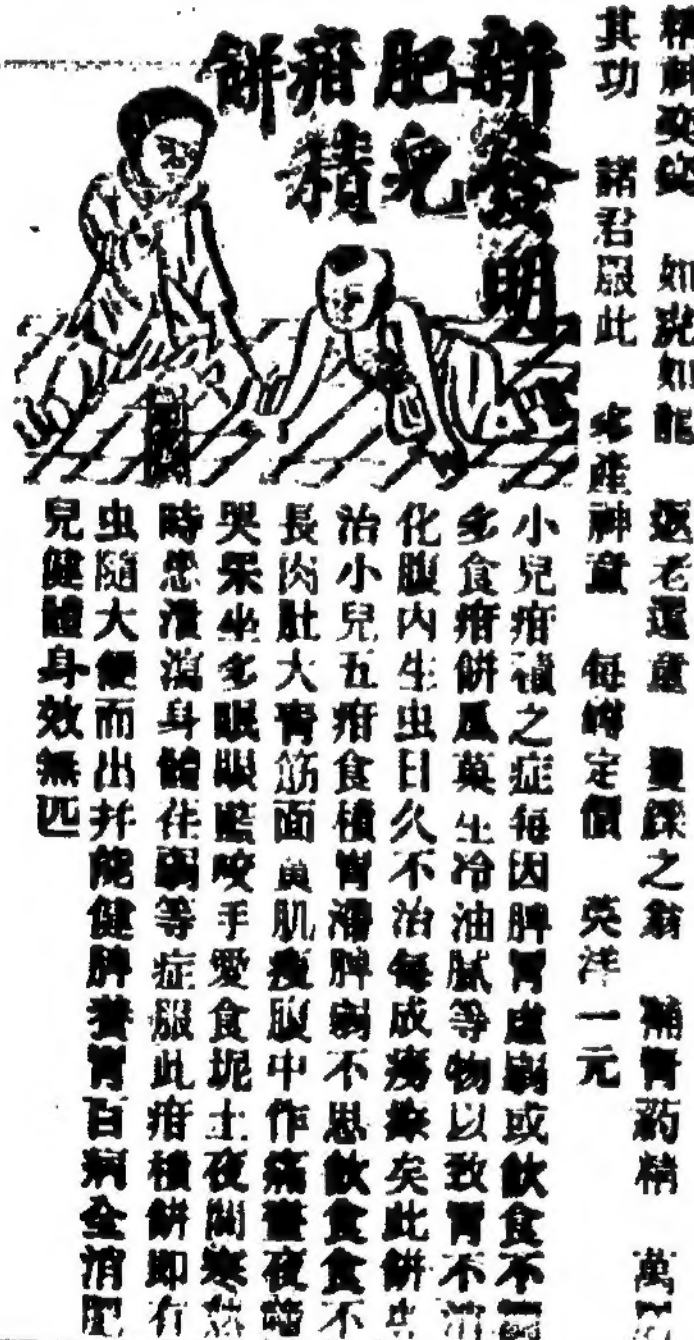 精神爽 如虎如龍 返老還童 矍鑠之翁 補腎葯精 萬
其功 諸君服此 多產神童 每罇定價 英洋一元
新發明
肥兒
疳積
餅
小兒疳積之症每因脾胃虛弱或飲食不
多食疳餅瓜菓生冷油膩等物以致胃不消
化腹內生虫日久不治每成癆瘵矣此餅專
治小兒五疳食積胃滯脾弱不思飲食食不
長肉肚大青筋面黃肌瘦腹中作痛晝夜啼
哭呆坐多眠眼 咬手愛食坭土夜間寒熱
時患洩瀉身體 弱等症服此疳積餅即有
虫隨大便而出并能健脾養胃百病全消肥
兒健體身效無匹